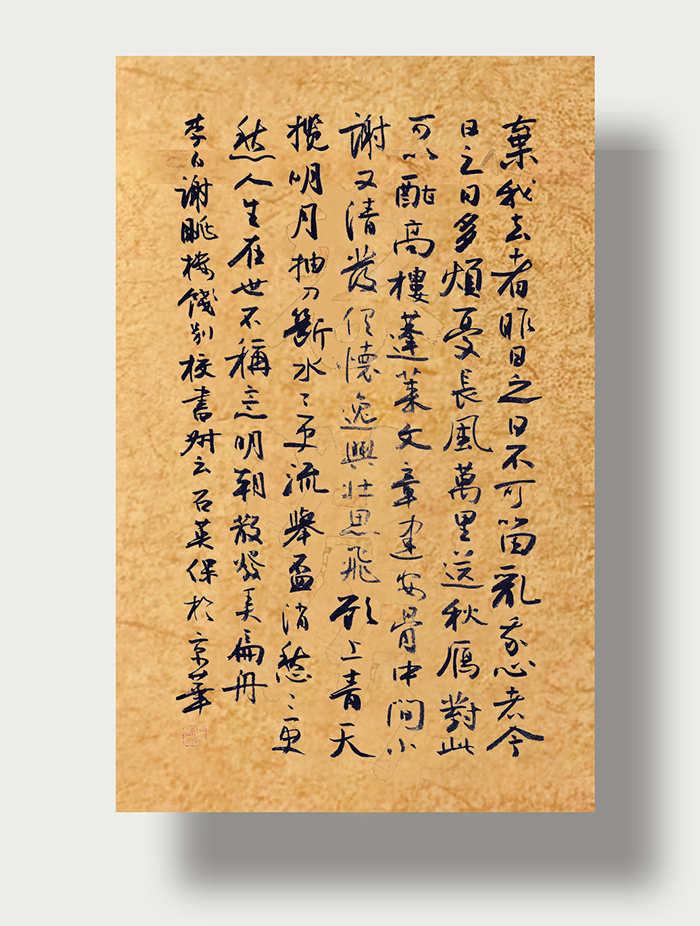 棄我去者昨日之日不可留亂我心者今
日之日多煩憂長風萬里送秋鴈對此
可以酣高樓蓬萊文章建安骨中間小
謝又清發俱懷逸興壯思飛欲上青天
攬明月抽刀斷水々更流舉盃消愁々更
愁人生在世不稱意明朝散發弄扁舟
李白謝眺樓餞別校書叔云石英保於京華